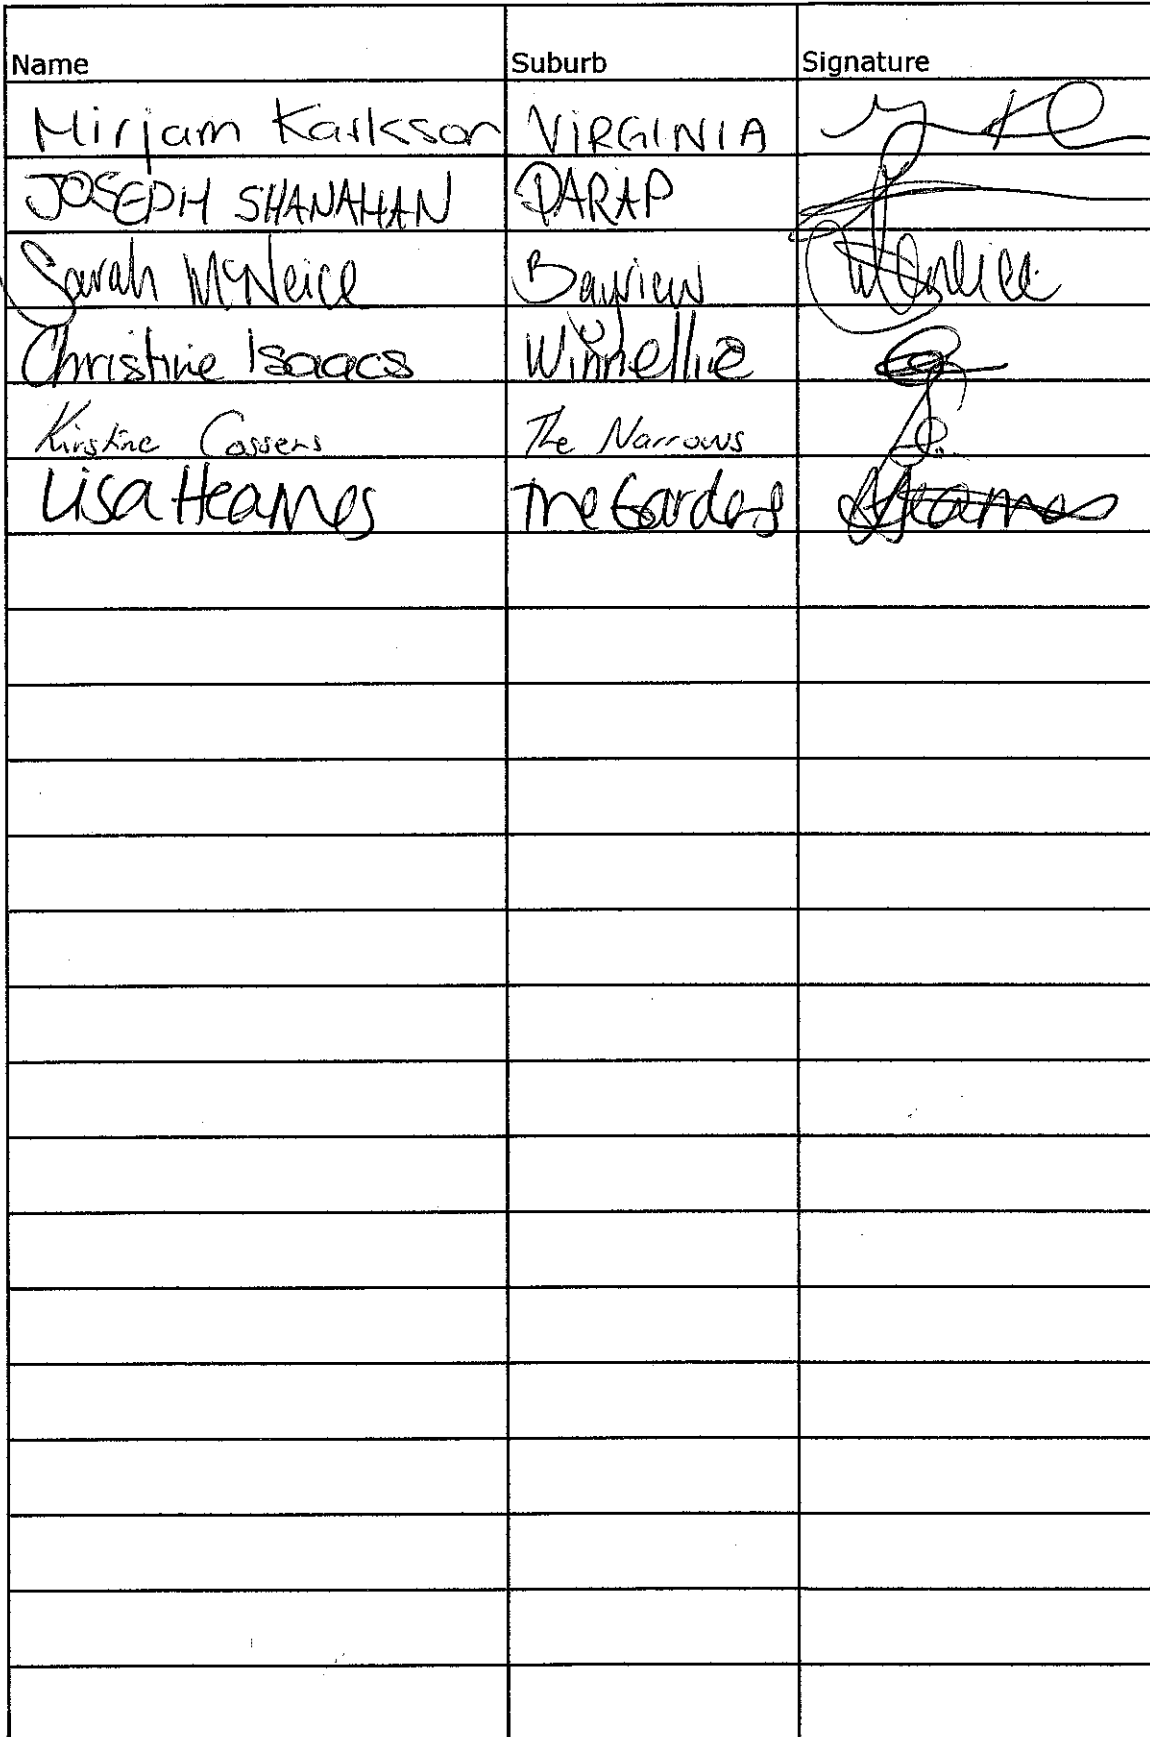 Name Suburb Signature
Mirjam Karlsson VIRGINIA
JOSEPH SHANAHAN PARAP
Sarah McNeice Bayview
Christine Isaacs Winnellie
Kirstine Cossens The Narrows
Lisa Heames The Gardens Heames